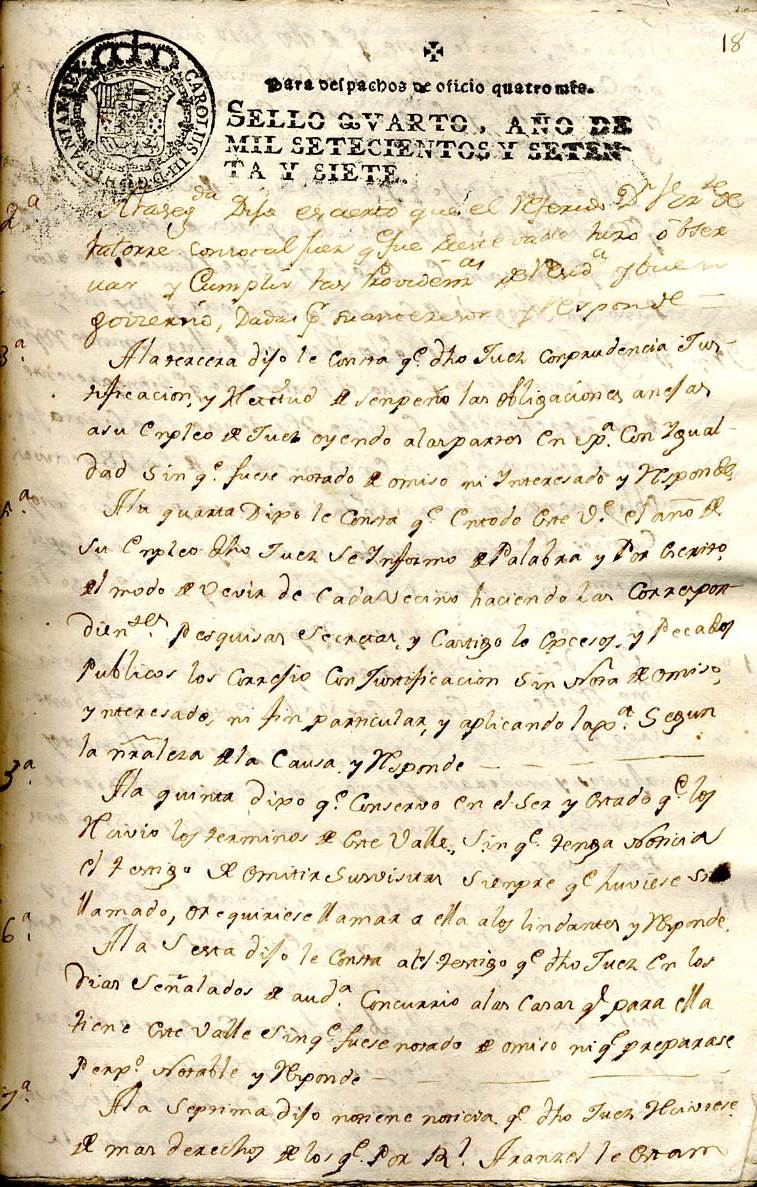 18
CAROLUS III D G HISPANIAR REX
Para despachos de oficio quatro mrs.
SELLO QVARTO, AÑO DE
MIL SETECIENTOS Y SETEN-
TA Y SIETE.
2ª
A la seg.da Dijo es cierto que el Referido D.n
latorre como tal Juez q.e fue de este valle hizo obser
var y Cumplir las Providenᵃˢ de Resid.ª y buen
govierno, Dadas p.r su antecesor y Responde —
3ª
A la tercera dijo le Consta q.e dho Juez con prudencia Jus-
tificacion, y Rectitud desenpeño las obligaciones anejas
a su Enpleo de Juez oyendo alas partes en Jp.ª Con Igual-
dad Sin q.e fuese notado de omiso ni Interesado y Rsponde
A la quarta Dijo le Consta q.e en todo este V.e el año de
Su Enpleo dho Juez Se Informo de Palabra y Por Escrito,
del modo de Vivir de Cada Vecino haciendo las Correspon-
dientes Pesquisas Secretas, y Castigo lo Excesos, y Pecados
Publicos los Correjio Con Justificacion Sin Nota de omiso,
Ynteresado, ni fin particular, y aplicando la p.ª Segun
la nrãleza de la Causa y Rsponde —
A la quinta dijo q.e Conservo en el Ser y Estado q.e los
Recivio los terminos de Este Valle, Sin q.e tenga Noticia
el testigo de omitir Su visitas Siempre q.e huviese Sido
llamado, o requiriese llamar a ella a los lindantes y Rponde.
6ª
A la Sesta dijo le Consta al testigo q.e dho Juez en los
dias Señalados de aud.ª Concurrio a las Casas q.e para ella
tiene Este Valle Sin q.e fuese notado de omiso ni q.e preparase
Perp.o Notable y Rponde —
7ª
A la Septima dijo no tiene noticia q.e dho Juez Reciviese
de mas derechos de los q.e Por R.l Aranzel le Estam